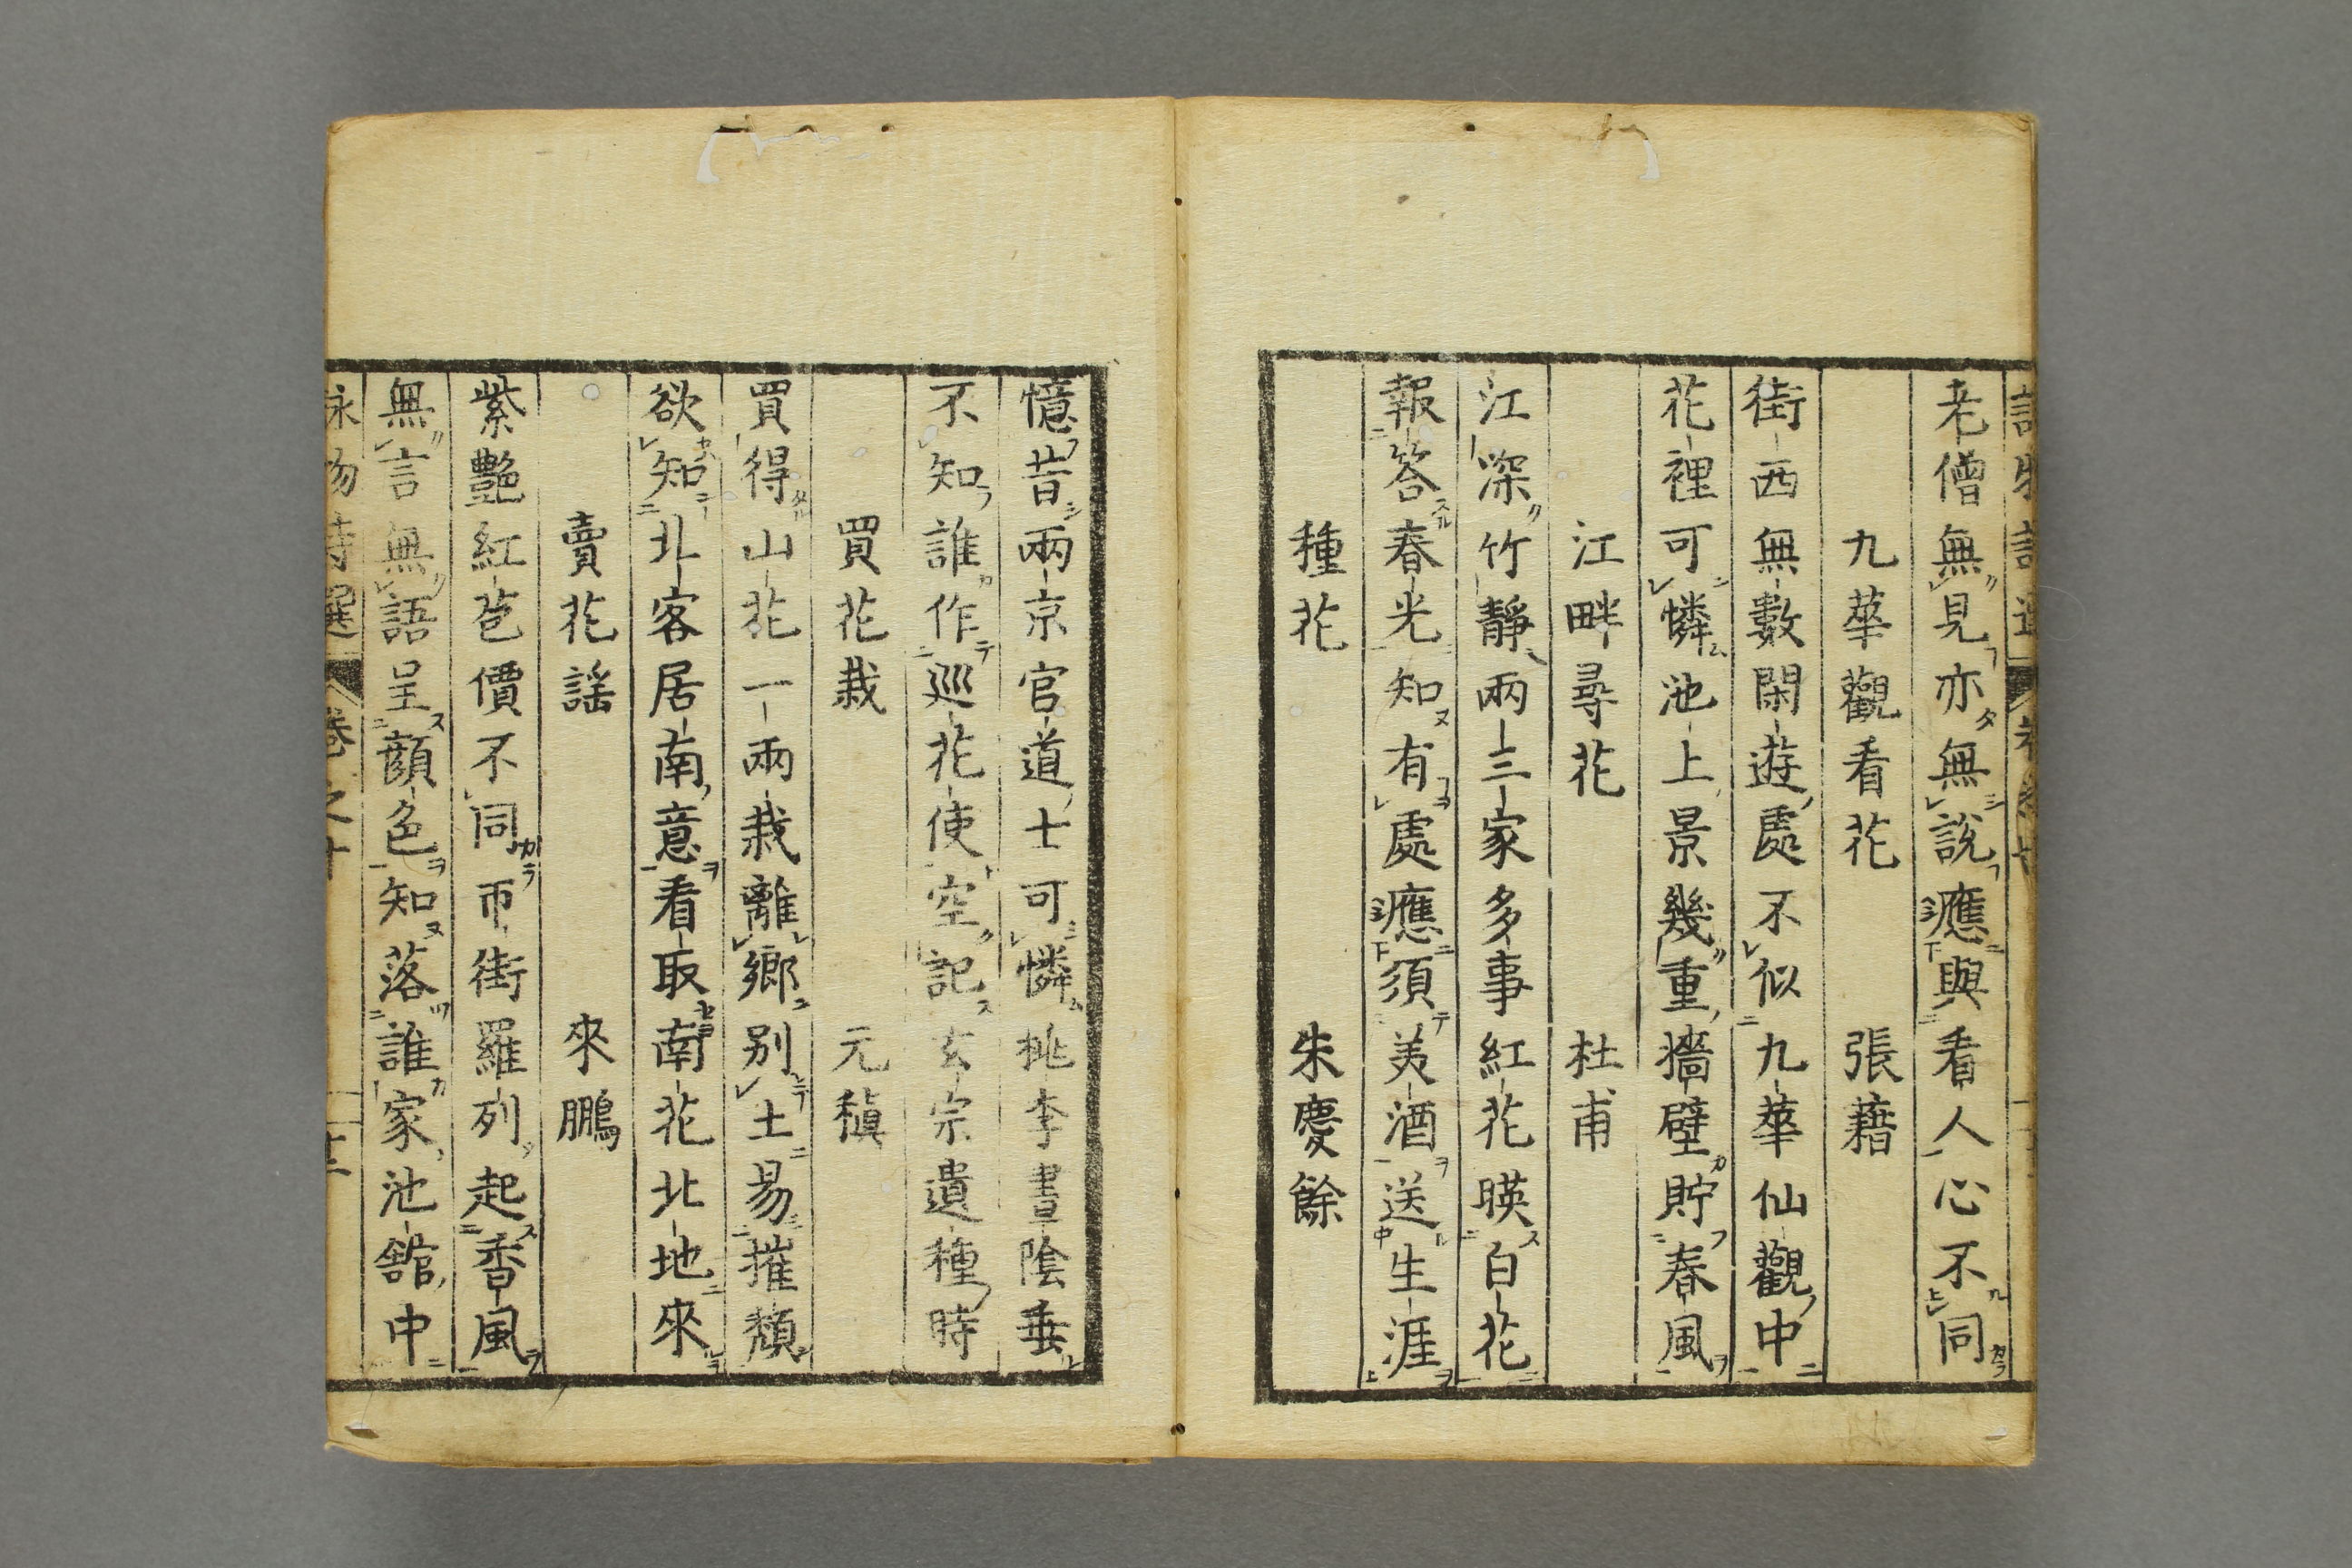 老僧無見亦無說應與看人心不同
九華觀看花 張藉
街西無數閑遊處不似九華仙觀中
花裡可憐池上景幾重墻壁貯春風
江畔尋花 杜甫
江深竹靜兩三家多事紅花暎白花
報答春光知有處應須羙酒送生涯
種花 朱慶餘
憶昔兩京官道士可憐桃李晝陰垂
不知誰作巡花使空記玄宗遺種時
買花栽 元稹
買得山花一兩栽離鄉別土易摧頹
欲知北客居南意看取南花北地來
賣花謡 來鵬
紫艷紅苞價不同帀街羅列起香風
無言無語呈顔色知落誰家池舘中
詠物詩選 卷之十